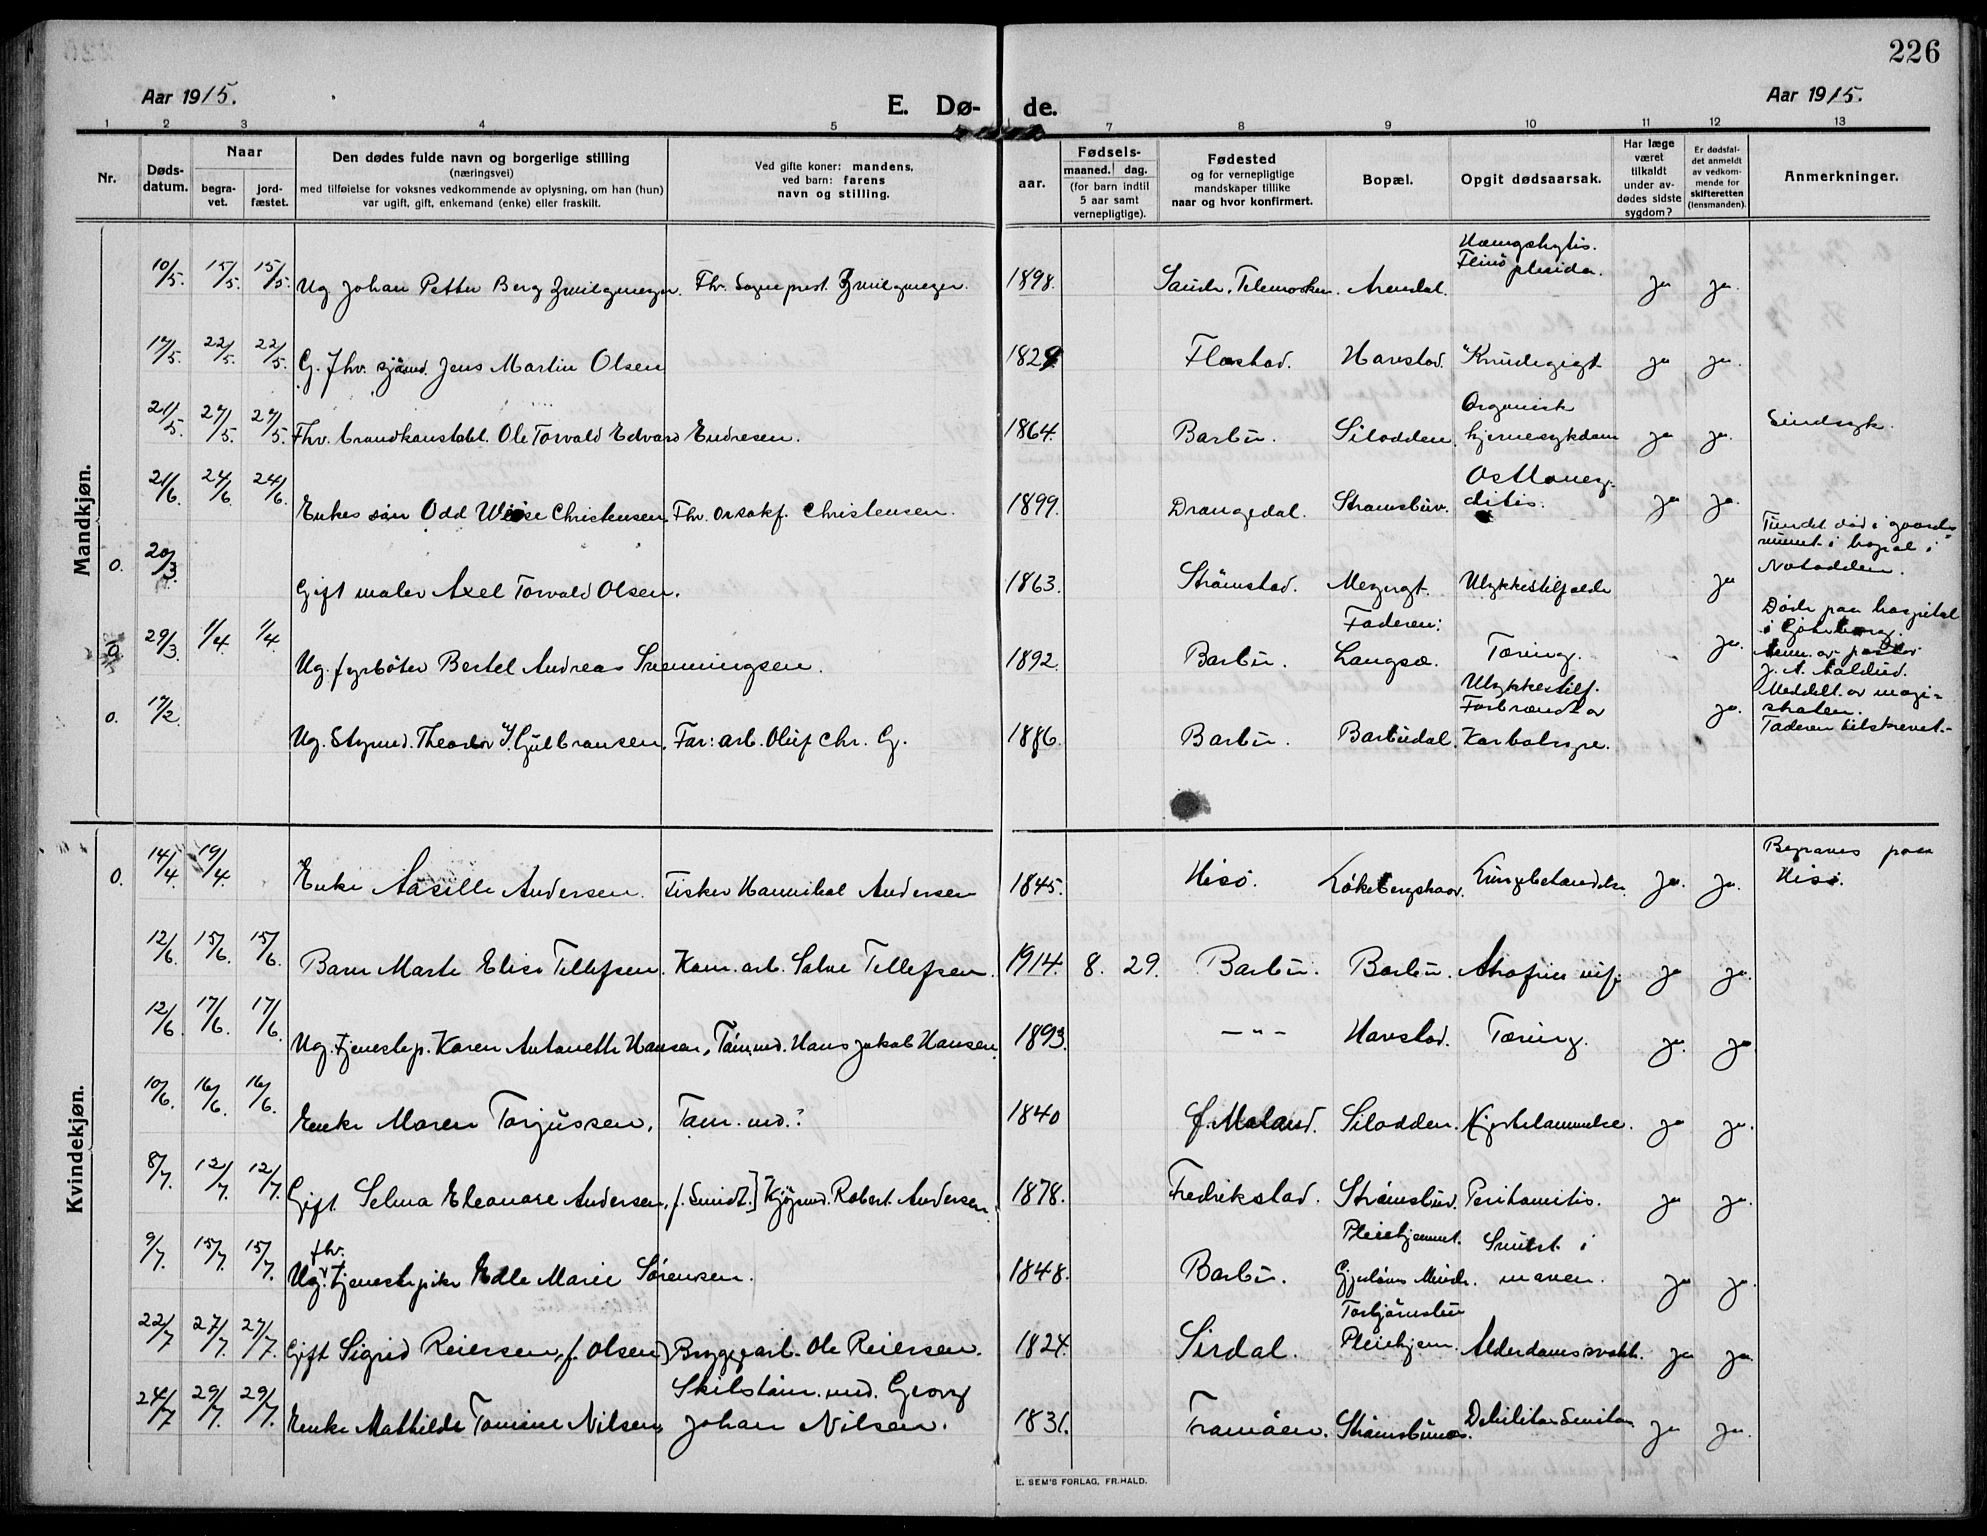 226
Aar 1915.
E. Dø- de.
Aar 1915.
1 2 3 4 5 7 8 9 10 11 12 13
Nr.
Døds-
datum.
Naar
begra-
vet.
jord-
fæstet.
Den dødes fulde navn og borgerlige stilling
(næringsvei)
med tilføielse for voksnes vedkommende av oplysning, om han (hun)
var ugift, gift, enkemand (enke) eller fraskilt.
Ved gifte koner: mandens,
ved barn: farens
navn og stilling.
aar.
Fødsels-
maaned. dag.
(for barn indtil
5 aar samt
vernepligtige).
Fødested
og for vernepligtige
mandskaper tillike
naar og hvor konfirmert.
Bopæl.
Opgit dødsaarsak.
Har læge
været
tilkaldt
under av-
dødes sidste
sygdom?
Er dødsfal-
det anmeldt
av vedkom-
mende for
skifteretten
(lensmanden).
Anmerkninger.
Mandkjøn.
10/5. 15/5. 15/5. Ug Johan Petter Berg Zwilgmeyer. Fhv. Sogneprest Zwilgmeyer. 1898. Telemarken. Arendal. ja ja.
17/5. 22/5. 22/5. G. fhv. sjømd. Jens Martin Olsen Flostad. Havstad. Knudegigt ja ja.
21/5. 27/5. 27/5. Fhv. brandkonstabel. Ole Torvald Edvard Endresen. 1864. Barbu. Silodden. Organisk
hjernesykdom ja ja. Sindsyk.
21/6. 24/6. 24/6. Enkes søn Odd Christensen. Fhv. Christensen. 1899. Drangedal. Strømsbu. ja ja.
o. 20/3. Gift maler Axel Torvald Olsen. 1863. Strømstad. Ulykkestilfælde ja
Fundet død i
i
Notodden.
29/3. 1/4. 1/4. Ug. fyrbøter Bertel Andreas Svenningsen. 1892. Barbu. Faderen:
Langsæ. Tæring. ja.
Døde paa hospital
i Gøteborg.
Anm. av pastor
o. 17/2. Ug. Styrmd. Theodor Gulbransen. Far: arb. Oluf Chr. G. 1886. Barbu. Barbudal. Ulykkestilf.
Forbrændt av
Karbolsyre. ja.
Meddelt av magi-
straten.
Faderen tilskrevet.
Kvindekjøn.
O. 14/4. 19/4. Enke Aasille Andersen. Fisker Hannibal Andersen 1845. Hisø. Lungebetændelse. ja. ja. Begraves paa
Hisø.
12/6. 15/6. 15/6. Barn Marte Elise Tellefsen. Kom. arb. Salve Tellefsen. 1914. 8. 29. Barbu. Barbu. ja ja.
12/6. 17/6. 17/6. Ug. tjenestep. Karen Antonette Hansen, Tøm.md. Hans Jakob Hansen. 1893. — " — Havstad. Tæring. ja. ja.
10/6. 16/6. 16/6. Enke Maren Torjussen. Tøm. md.? 1840 Silodden. Hjertelammelse. ja ja.
8/7. 12/7. 12/7. Gift Selma Eleonore Andersen, f. Smidt.] Robert Andersen. 1878. Fredrikstad. Strømsbu. Peritonitis. ja ja.
9/7. 15/7. 15/7. Ug. fhv. tjenestepike Edle Marie Sørensen. 1848. Barbu. Pleiehjemmet.
Minde. ja ja.
22/7 27/7. 27/7. Gift Sigrid Reiersen, f. Olsen] Bryggearb. Ole Reiersen. 1824. Sirdal. Torbjørnsbu
Pleiehjem. Alderdomssvakh. ja ja.
24/7 29/7. 29/7. Enke Mathilde Tomine Nilsen, Skibstøm. md. Georg
Johan Nilsen. 1831. Tromøen. Strømsbunes. Debilitas Senilas ja ja.
E. SEM'S FORLAG, FR.HALD.